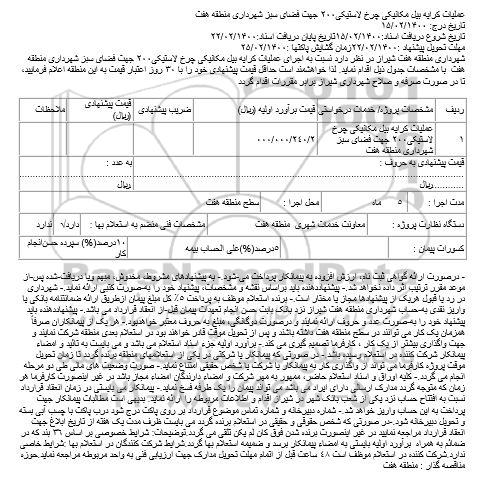 عملیات کرایه بیل مکانیکی چرخ لاستیکی۲۰۰ جهت فضای سبز شهرداری منطقه هفت
تاریخ درج: ۱۵/۰۲/۱۴۰۰
تاریخ شروع دریافت اسناد:۱۵/۰۲/۱۴۰۰تاریخ پایان دریافت اسناد:۲۲/۰۲/۱۴۰۰
مهلت تحویل پیشنهاد :۲۲/۰۲/۱۴۰۰زمان گشایش پاکتها :۲۵/۰۲/۱۴۰۰
شهرداری منطقه هفت شیراز در نظر دارد نسبت به اجرای عملیات کرایه بیل مکانیکی چرخ لاستیکی۲۰۰ جهت فضای سبز شهرداری منطقه
هفت با مشخصات جدول ذیل اقدام نماید. لذا خواهشمند است حداقل قیمت پیشنهادی خود را با ۳۰ روز اعتبار قیمت به این منطقه اعلام فرمایید،
تا در صورت صرفه و صلاح شهرداری شیراز برابر مقررات اقدام گردد
ردیف مشخصات پروژه/ خدمات درخواستی قیمت برآورد اولیه (ریال) ضریب پیشنهادی قیمت پیشنهادی (ریال) ملاحظات
۱ عملیات کرایه بیل مکانیکی چرخ ۰۰۰/۰۰۰/۲۴۰/۲
لاستیکی۲۰۰ جهت فضای سبز
شهرداری منطقه هفت
قیمت پیشنهادی به حروف : به عدد :
ریال ریال
مدت اجرا : ۵ ماه محل اجرا : سطح منطقه هفت
دستگاه نظارت پروژه : معاونت خدمات شهری منطقه هفت مشخصات فنی منضم به استعلام بها : دارد/√ ندارد
کسورات پیمان : ۵درصد(%)علی الحساب بیمه ۱۰درصد(%) سپرده حسن‌انجام کار
- درصورت ارائه گواهی ثبت نام، ارزش افزوده به پیمانکار پرداخت می‌شود.- به پیشنهادهای مشروط، مخدوش، مبهم ویا دریافت‌شده پس‌از
موعد مقرر ترتیب اثر داده نخواهد شد.- پیشنهاددهنده باید براساس نقشه و مشخصات، پیشنهاد خود را به‌صورت کتبی ارائه نماید.- شهرداری
در رد یا قبول هریک از پیشنهادها مجاز یا مختار است.- برنده استعلام موظف به پرداخت ۵٪ کل مبلغ پیمان ازطریق ارائه ضمانتنامه بانکی یا
واریز نقدی به‌حساب شهرداری منطقه هفت شیراز نزد بانک بابت حسن انجام تعهدات پیمان قبل‌از انعقاد قرارداد می باشد.- پیشنهاددهنده باید
پیشنهاد خود را به‌صورت عدد و حروف ارائه نمایند و درصورت دوگانگی، مبلغ به حروف معتبر خواهدبود.- هر یک از پیمانکاران صرفاً
همزمان یک کار می توانند در سطح منطقه هفت داشته باشند و پس از تحویل موقت قادر خواهند بود در استعلام بعدی منطقه شرکت نمایند و
جهت واگذاری بیشتر از یک کار ، کارفرما تصمیم گیری می کند.- برآورد اولیه جزء اسناد استعلام می باشد و می بایست به تائید و امضاء
پیمانکار شرکت کننده در استعلام رسیده باشد.- در صورتی که پیمانکار یا شرکتی در یکی از استعلامهای منطقه برنده گردد تا زمان تحویل
موقت پروژه کارفرما می تواند از واگذاری کار به پیمانکار یا شرکت یا شخص حقیقی امتناع نماید.- صورت وضعیت های مالی طی دو مرحله
انجام می گردد.- کلیه اوراق و اسناد استعلام حاضر، ممهور به مهر شرکت و امضاء دارندگان امضاء مجاز باشد در غیر اینصورت کارفرما هر
زمان که متوجه گردد مدارک ارسالی دارای ایراد می باشد می تواند پیمان را یک طرفه فسخ نماید.- پیمانکار می بایستی در زمان انعقاد قرارداد
نسبت به افتتاح حساب نزد یکی از شعب بانک شهر در شیراز اقدام و اطلاعات مربوطه را ارائه نماید. بدیهی است مطالبات پیمانکار جهت
پرداخت به این حساب واریز خواهد شد.- شماره دبیرخانه و شماره تماس موضوع قرارداد بر روی پاکت درج شود درب پاکت با چسب آبی بسته
و تحویل دبیرخانه شود.-در صورتی که شخص حقوقی و حقیقی در استعلام برنده گردد می بایست ظرف مدت یک هفته از تاریخ ابلاغ جهت
انعقاد قرارداد مراجعه نمایید در غیر اینصورت برنده شدن فوق کان لم یکن تلقی می گردد.توضیحات: شرایط خصوصی بر اساس ۳۶ بند که در
ضمائم به همراه برآورد اولیه بایستی به امضاء پیمانکار برسد و ضمیمه استعلام بها گردد.شرایط شرکت کنندگان در استعلام بها :شرایط خاصی
ندارد.شرکت کننده در استعلام موظف است ۴۸ ساعت قبل از اتمام مهلت تحویل مدارک جهت ارزیابی فنی به واحد مربوطه مراجعه نماید.حوزه
مناقصه گذار : منطقه هفت